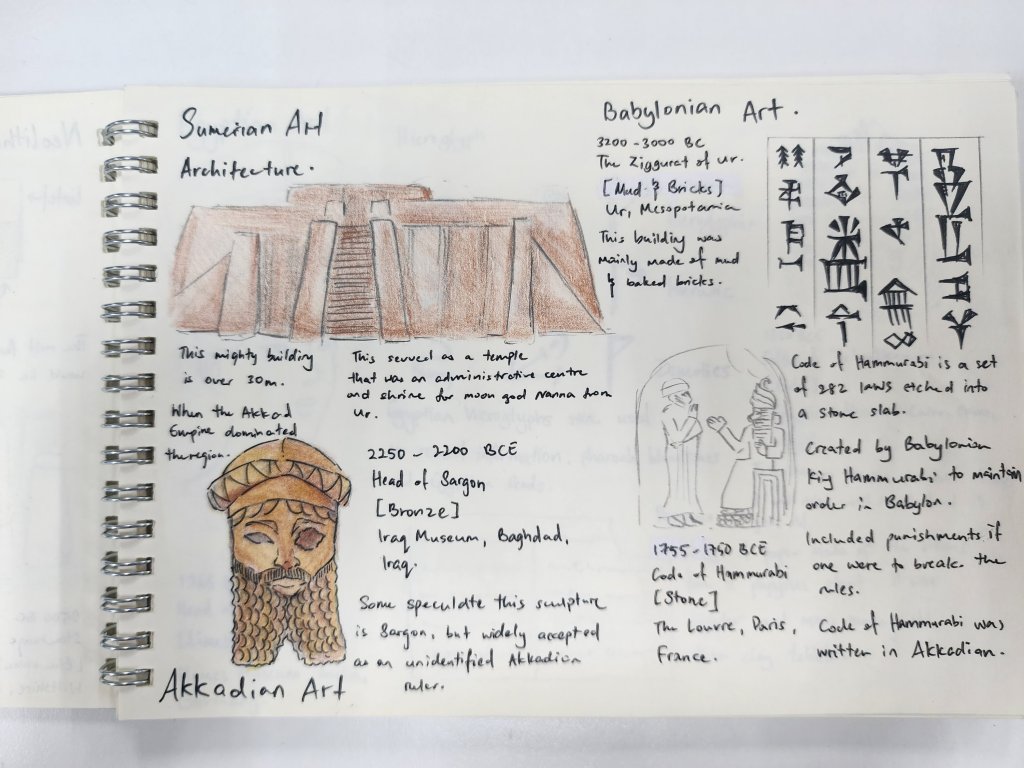 Sumerian Art
Architecture.
This mighty building
is over 30m.
This served as a temple
that was an administrative centre
and shrine for moon god Nanna from
Ur.
Babylonian Art.
3200-3000 BC
The Ziggurat of Ur.
[Mud & Bricks]
Ur, Mesopotamia
This building was
mainly made of mud
& baked bricks.
When the Akkad
Empire dominated
the region.
2250 - 2200 BCE
Head of Sargon
[Bronze]
Iraq Museum, Baghdad,
Iraq.
Some speculate this sculpture
is Sargon, but widely accepted
as an unidentified Akkadian
ruler.
Akkadian Art
1755-1750 BCE
Code of Hammurabi
[Stone]
The Louvre, Paris,
France.
Code of Hammurabi is a set
of 282 laws etched into
a stone slab.
Created by Babylonian
King Hammurabi to maintain
order in Babylon.
Included punishments if
one were to break the
rules.
Code of Hammurabi was
written in Akkadian.